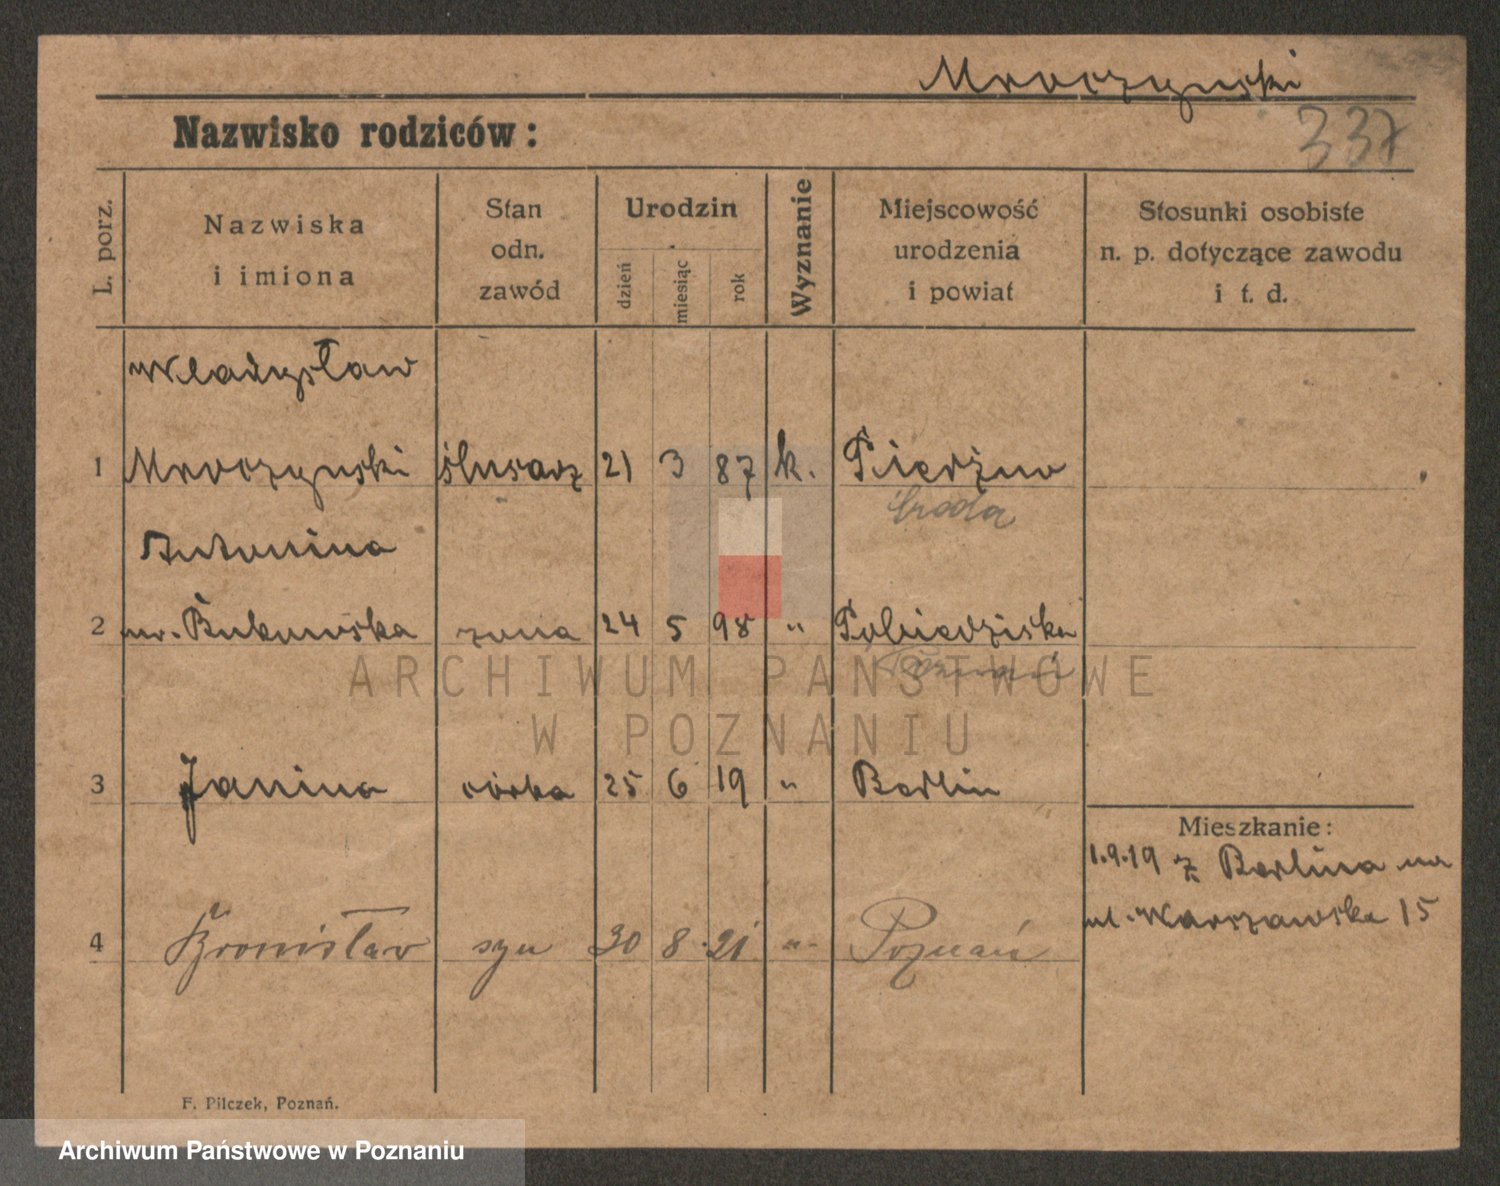 Mroczynski
337
Nazwisko rodziców:
L. porz.
Nazwiska
i imiona
Stan
odn.
zawód
Urodzin
dzień
miesiąc
rok
Wyznanie
Miejscowość
urodzenia
i powiat
Stosunki osobiste
n. p. dotyczące zawodu
i t. d.
Władysław
1 Mroczynski ślusarz 21 3 87 k. Pierzno
Środa
Antonina
2 ur. Bukowska zona 24 5 98 " Pobiedziska
Poznań
3 Janina córka 25 6 19 " Berlin
Mieszkanie:
1.9.19 z Berlina na
ul. Warszawska 15
4 Bronisław syn 30 8 21 " Poznań
F. Pilczek, Poznań.
ARCHIWUM PAŃSTWOWE
W POZNANIU
Archiwum Państwowe w Poznaniu